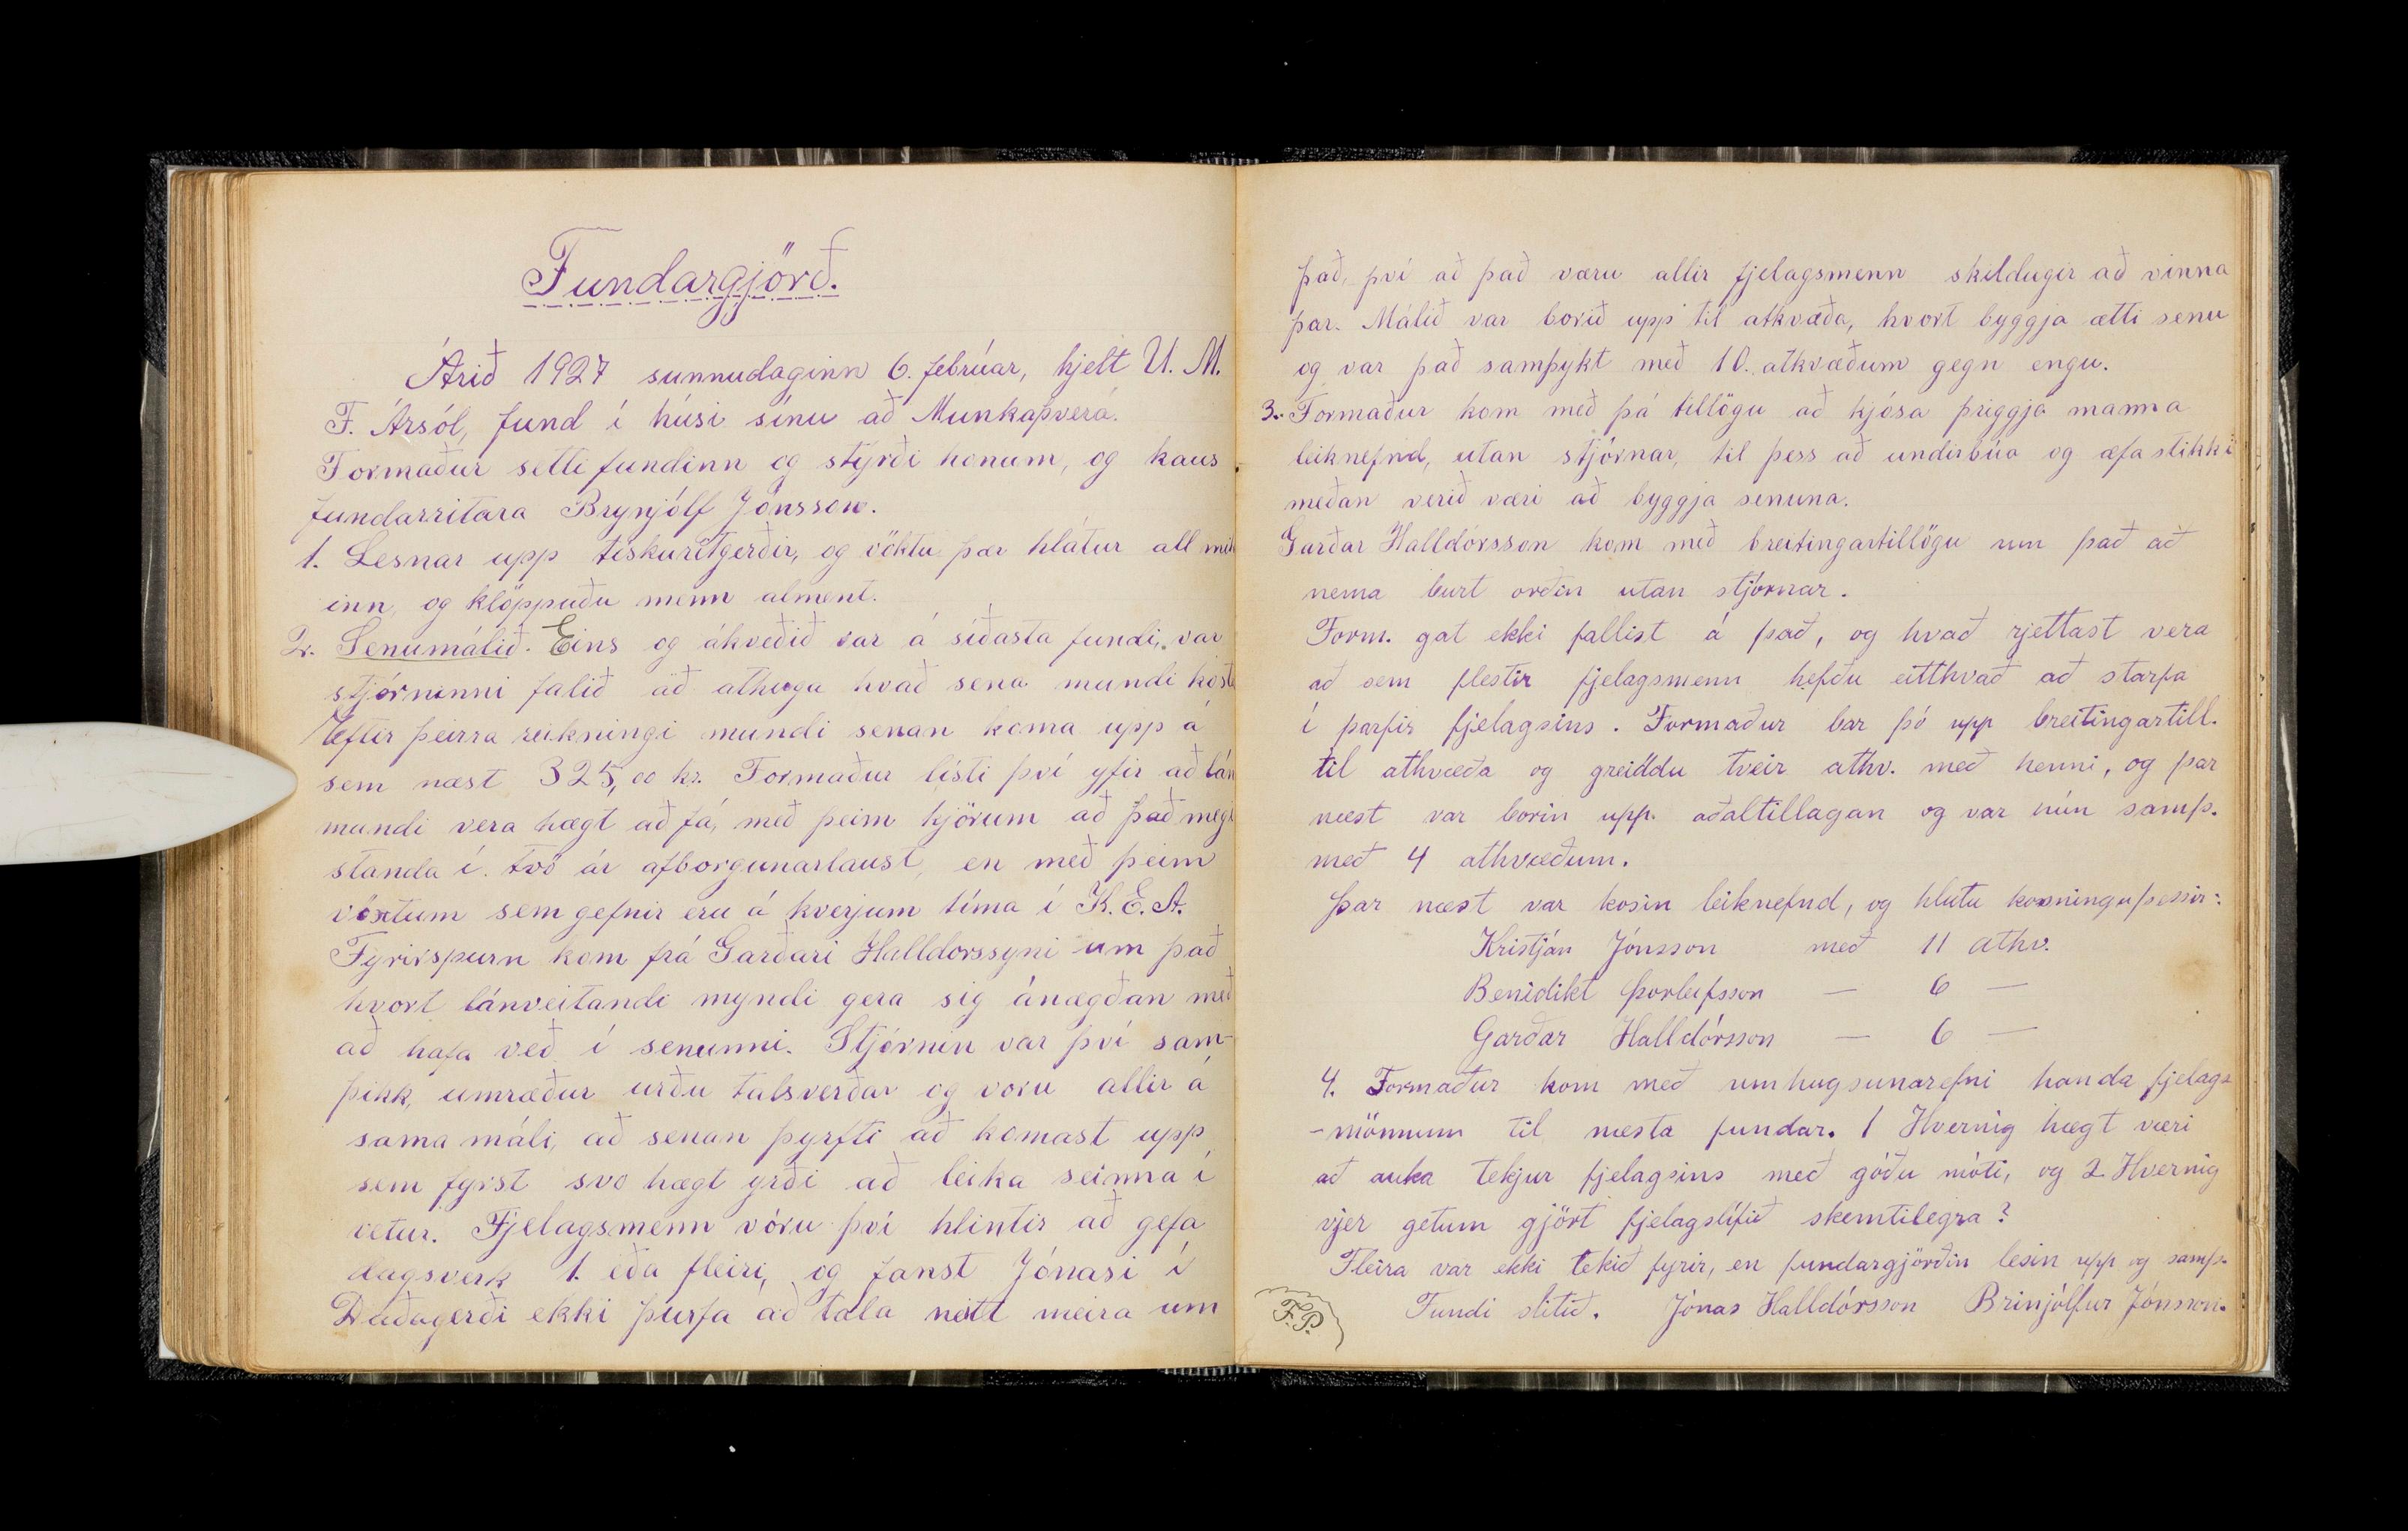 Fundargjörð.
Árið 1927 sunnudaginn 6. febrúar, hjelt U. M.
F. Ársól, fund í húsi sínu að Munkaþverá.
Formaður setti fundinn og stýrði honum, og kaus
fundarritara Brynjólf Jónsson.
1. Lesnar upp tískuritgerðir, og vöktu þær hlátur all mik
inn, og klöppuðu menn alment.
2. Senumálið. Eins og ákveðið var á síðasta fundi, var
stjórninni falið að athuga hvað sena mundi kosta
Eftir þeirra reikningi mundi senan koma upp á
sem næst 325,00 kr. Formaður lísti því yfir að lán
mundi vera hægt að fá, með þeim kjörum að það megi
standa í tvö ár afborgunarlaust, en með þeim
vöxtum sem gefnir eru á hverjum tíma í K.E.A.
Fyrirspurn kom frá Garðari Halldorssyni um það
hvort lánveitandi myndi gera sig ánægðan með
að hafa veð í senunni. Stjórnin var því sam-
þikk, umræður urðu talsverðar og voru allir á
sama máli, að senan þyrfti að komast upp
sem fyrst svo hægt yrði að leika seinna í
vetur. Fjelagsmenn vóru því hlintir að gefa
dagsverk 1. eða fleiri, og fanst Jónasi í
Daðagerði ekki þurfa að tala neitt meira um
það, því að það væru allir fjelagsmenn skildugir að vinna
þar. Málið var borið upp til atkvæða, hvort byggja ætti senu
og var það samþykt með 10. atkvæðum gegn engu.
3. Formaður kom með þá tillögu að kjósa þriggja manna
leiknefnd, utan stjórnar, til þess að undirbúa og æfa stikki
meðan verið væri að byggja senuna.
Garðar Halldórsson kom með breitingartillögu um það að
nema burt orðin utan stjórnar.
Form. gat ekki fallist á það, og hvað rjettast vera
að sem flestir fjelagsmenn hefðu eitthvað að starfa
í þarfir fjelagsins. Formaður bar þó upp breitingartill.
til athvæða og greiddu tveir athv. með henni, og þar
næst var borin upp. aðaltillagan og var hún samþ.
með 4 athvæðum.
Þar næst var kosin leiknefnd, og hlutu kosningu þessir:
Kristján Jónsson með 11 athv.
Benidikt Þorleifsson — 6 —
Garðar Halldórsson — 6 —
4. Formaður kom með umhugsunarefni handa fjelags
-mönnum til næsta fundar. 1 Hvernig hægt væri
að auka tekjur fjelagsins með góðu móti, og 2 Hvernig
vjer getum gjört fjelagslífið skemtilegra?
Fleira var ekki tekið fyrir, en fundargjörðin lesin upp og samþ.
Fundi slitið. Jónas Halldórsson Brinjólfur Jónsson.
F.P.